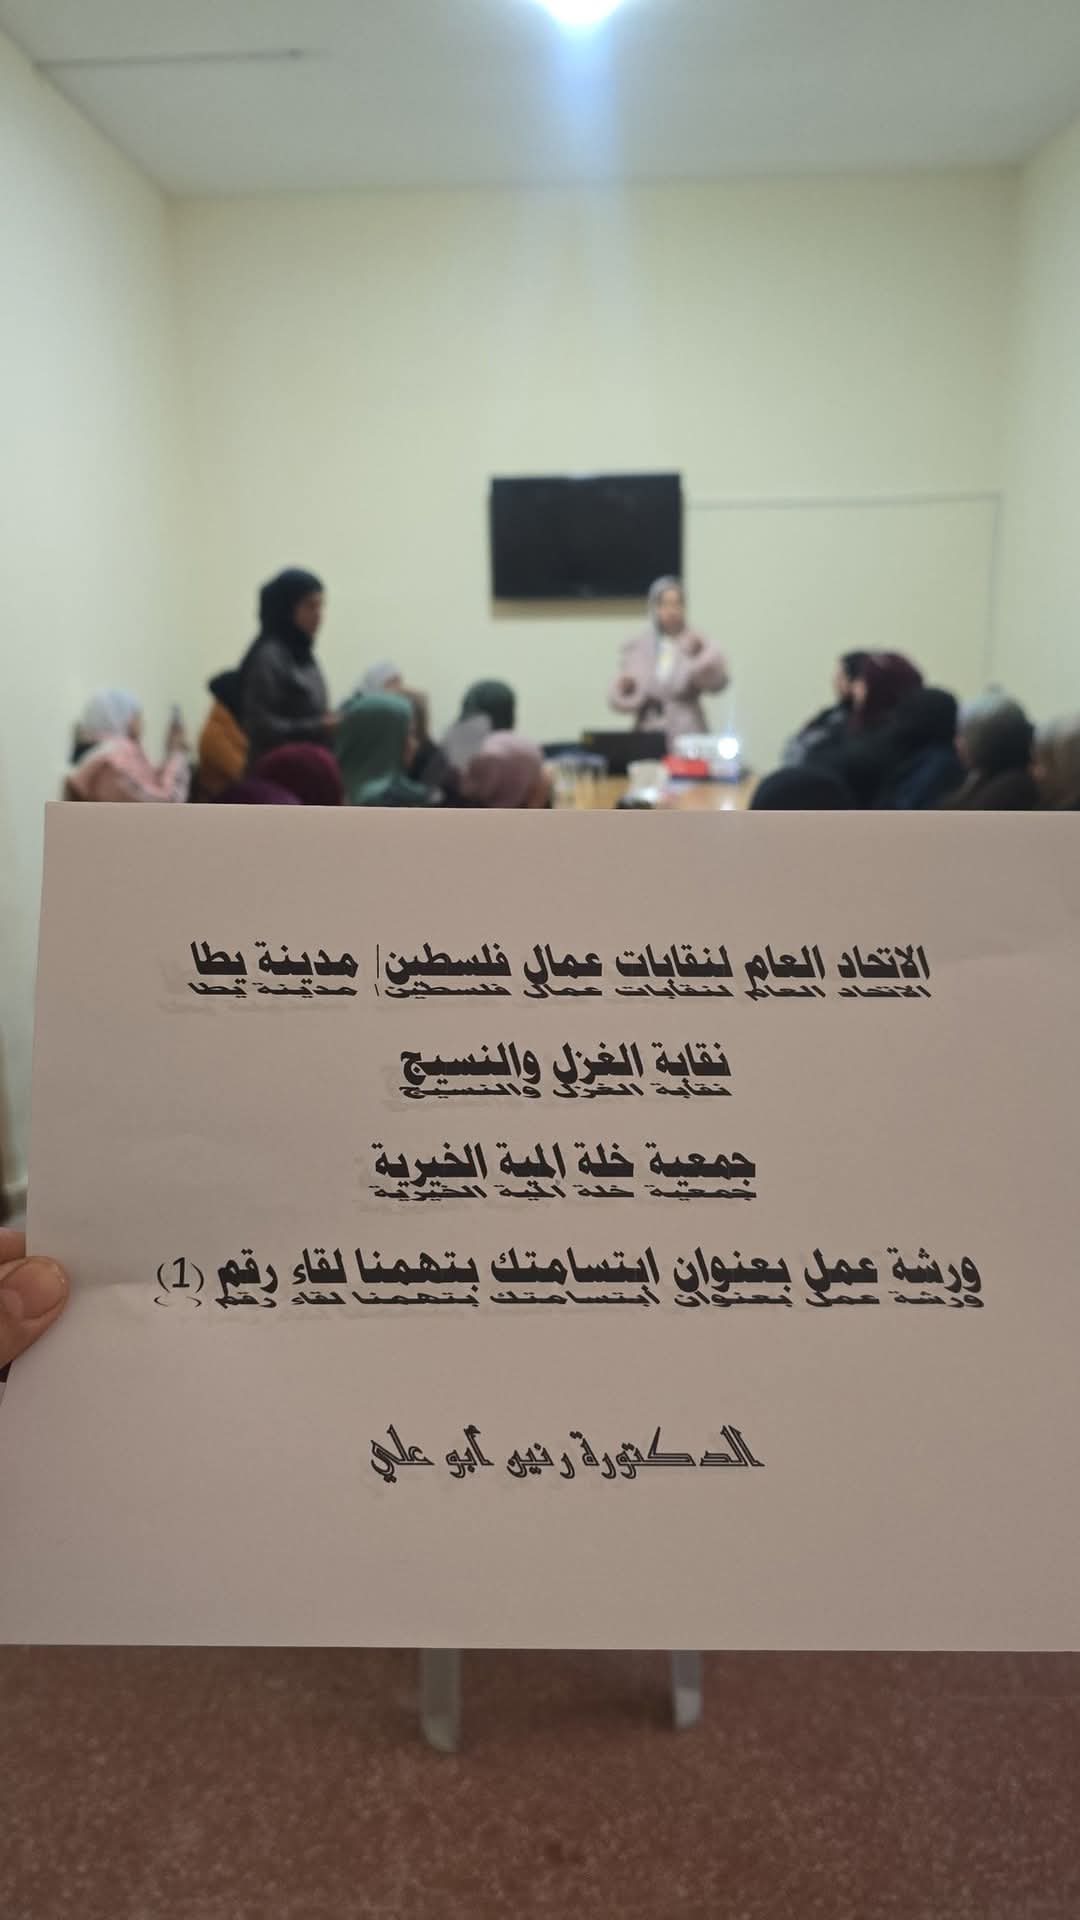 الاتحاد العام لنقابات عمال فلسطين| مدينة يطا
نقابة الغزل والنسيج
جمعية خلة المية الخيرية
ورشة عمل بعنوان ابتسامتك بتهمنا لقاء رقم (1)
الدكتورة رنين أبو علي